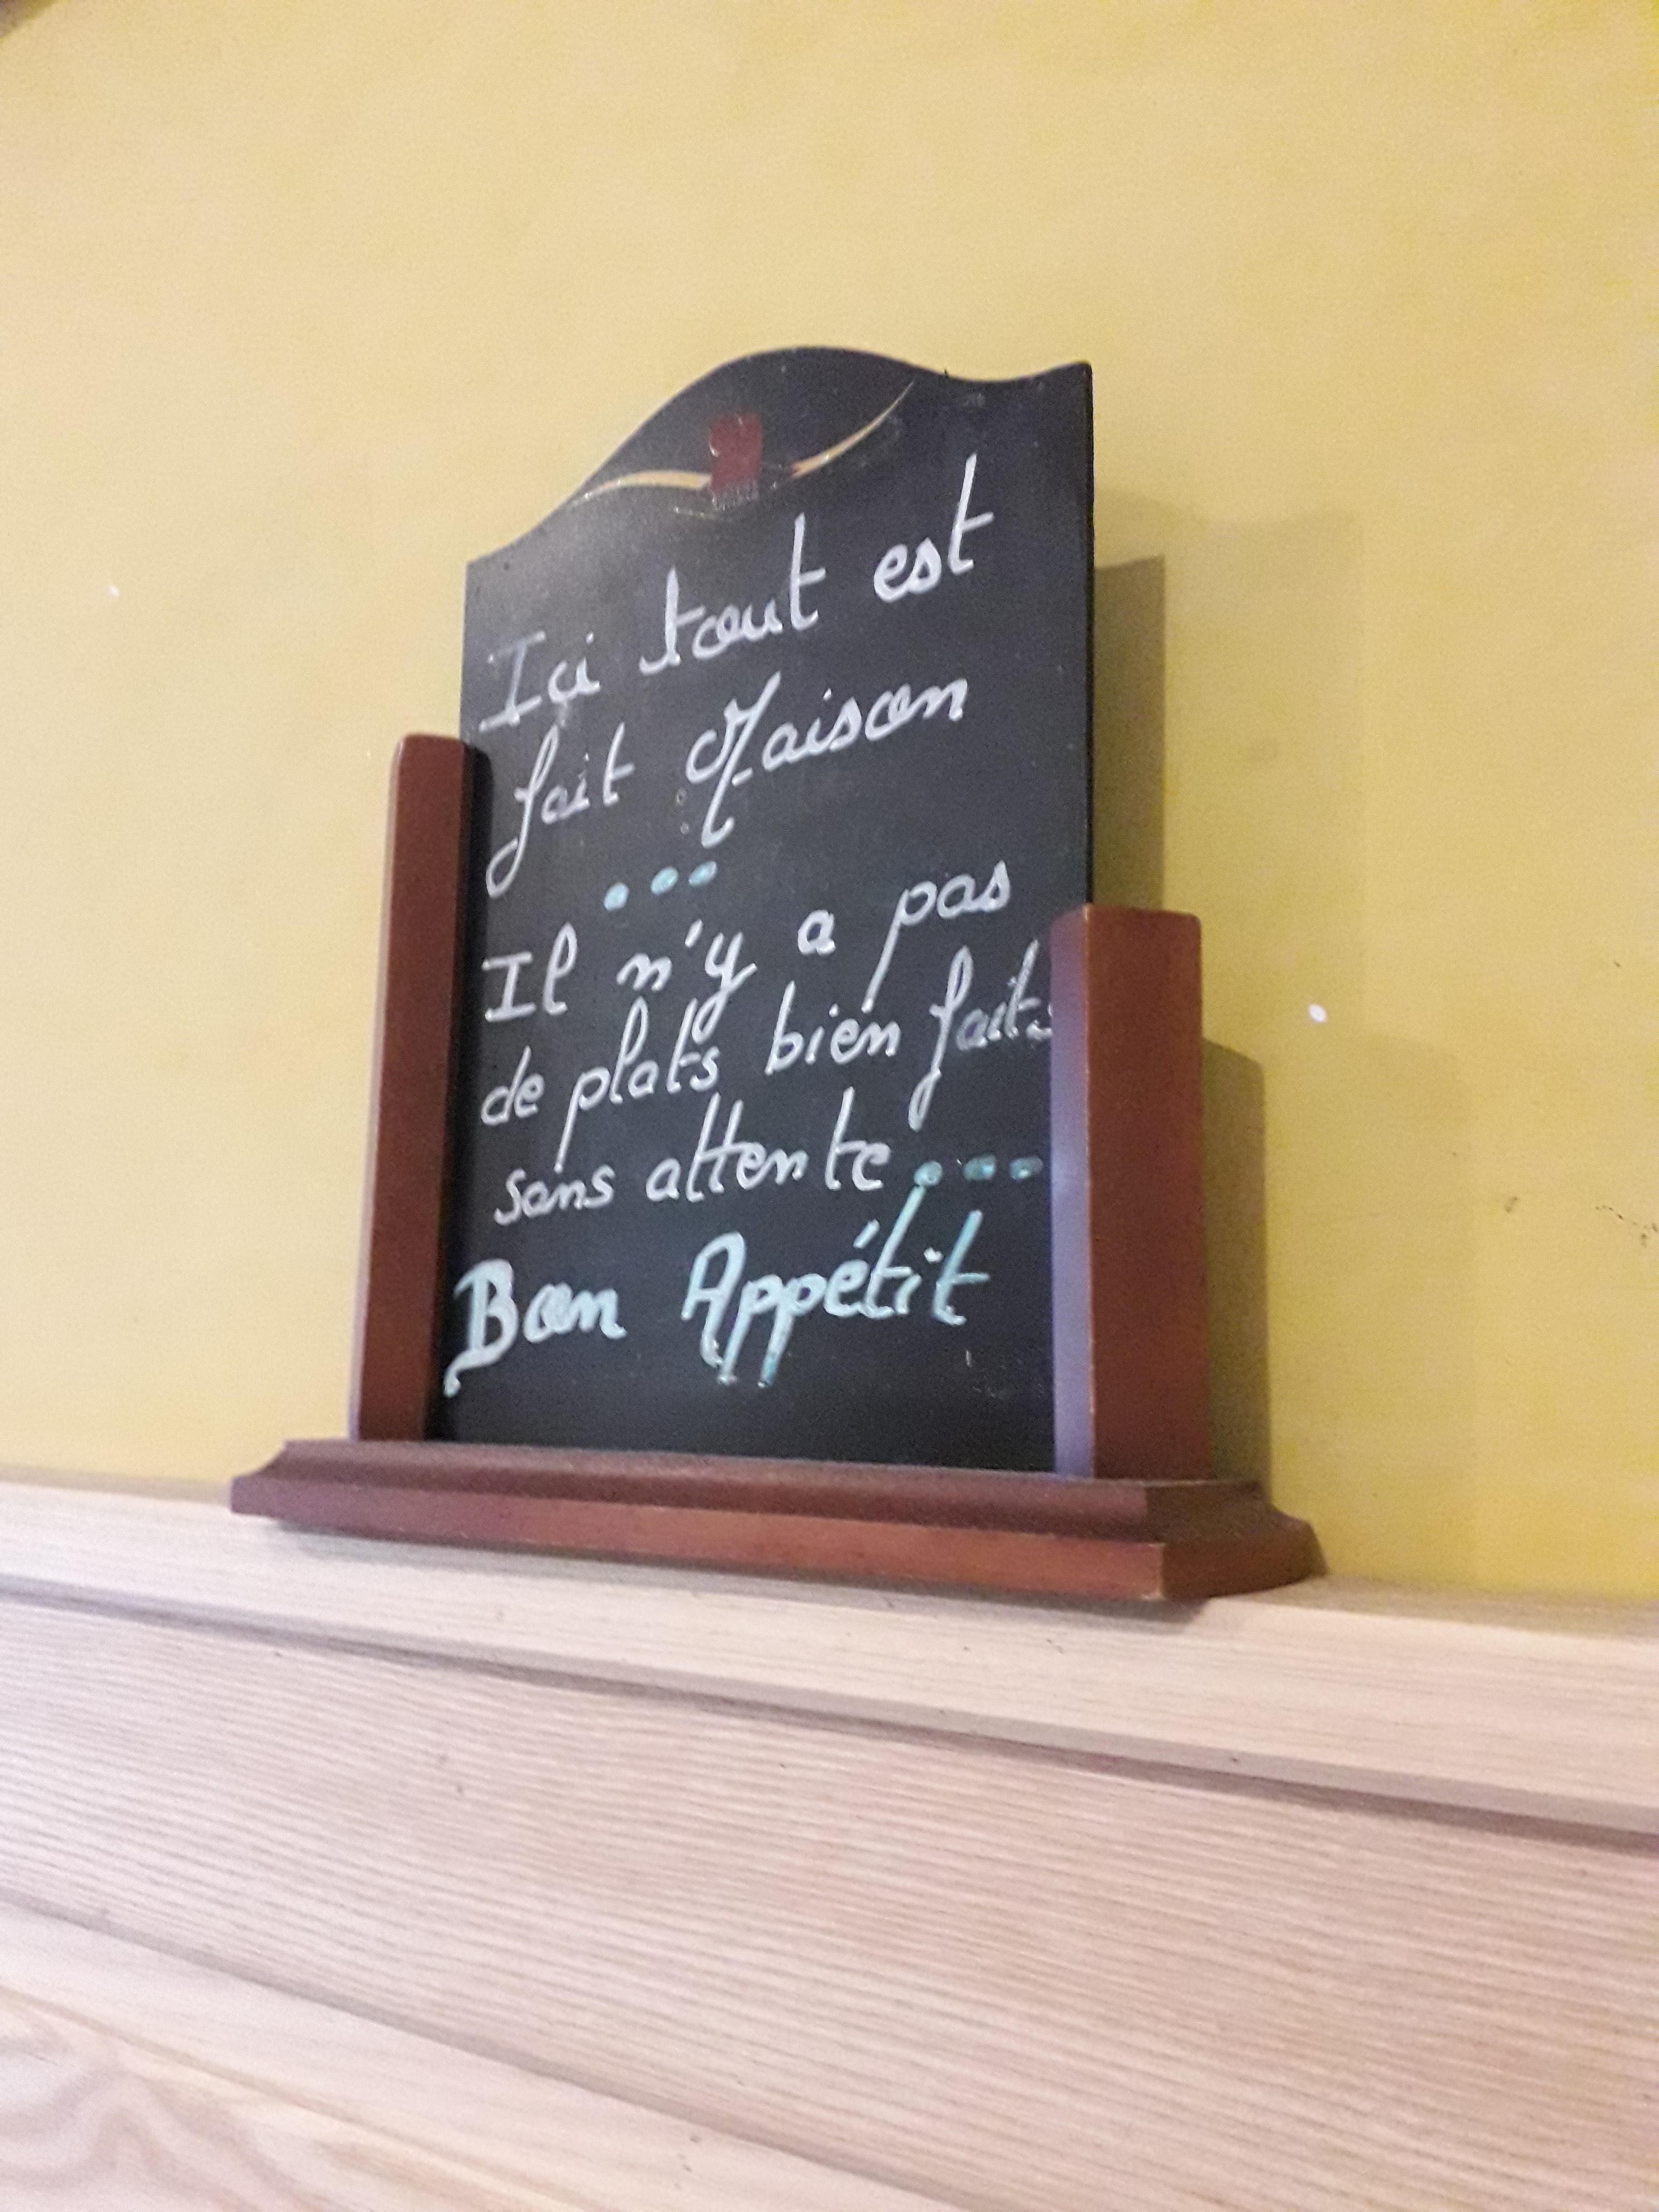 Ici tout est
fait Maison
...
Il n'y a pas
de plats bien faits
sans attente...
Bon Appétit